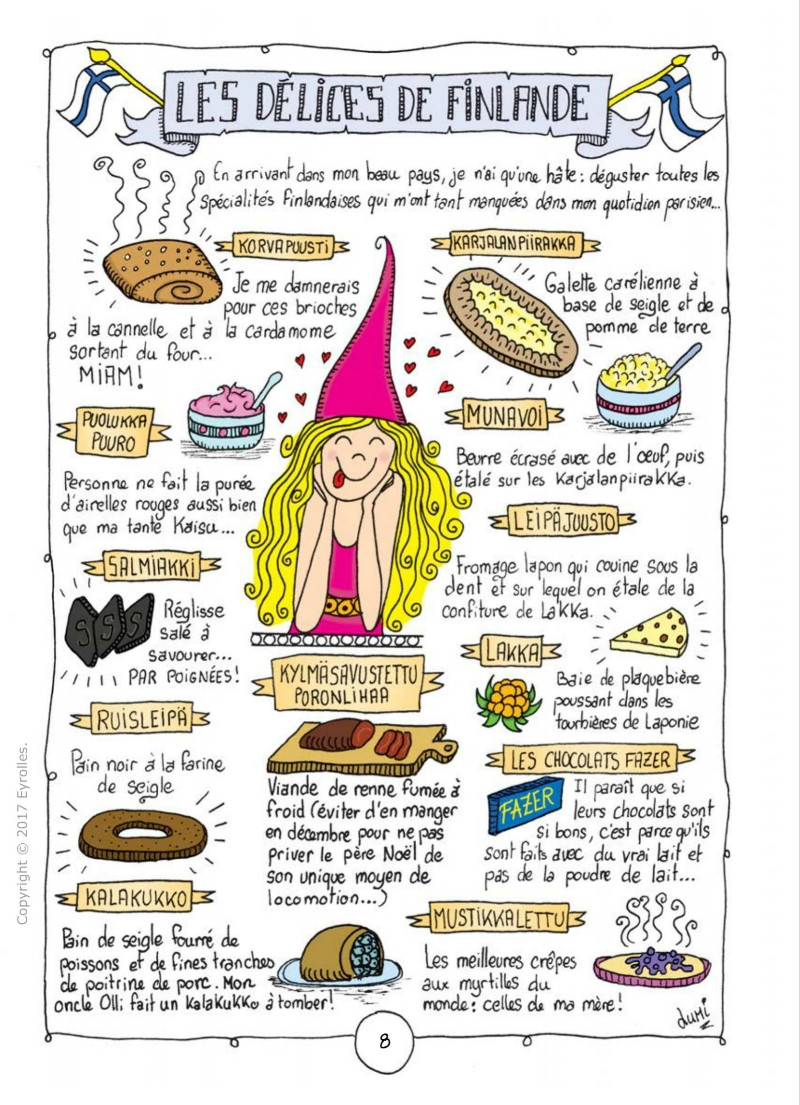 LES DÉLICES DE FINLANDE
En arrivant dans mon beau pays, je n'ai qu'une hâte : déguster toutes les
spécialités finlandaises qui m'ont tant manquées dans mon quotidien parisien...
KORVAPUUSTI
Je me damnerais
pour ces brioches
à la cannelle et à la cardamome
sortant du four...
MIAM!
KARJALANPIIRAKKA
Galette carélienne à
base de seigle et de
pomme de terre
PUOLUKKA
PUURO
Personne ne fait la purée
d'airelles rouges aussi bien
que ma tante Kaisu...
MUNAVOI
Beurre écrasé avec de l'oeuf, puis
étalé sur les Karjalanpiirakka.
LEIPÄJUUSTO
Fromage lapon qui couine sous la
dent et sur lequel on étale de la
confiture de Lakka.
SALMIAKKI
S S S
Réglisse
salé à
savourer...
PAR POIGNÉES!
LAKKA
Baie de plaquebière
poussant dans les
tourbières de Laponie
KYLMÄSAVUSTETTU
PORONLIHAA
Viande de renne fumée à
froid (éviter d'en manger
en décembre pour ne pas
priver le père Noël de
son unique moyen de
locomotion...)
RUISLEIPÄ
Pain noir à la farine
de seigle
LES CHOCOLATS FAZER
FAZER
Il paraît que si
leurs chocolats sont
si bons, c'est parce qu'ils
sont faits avec du vrai lait et
pas de la poudre de lait...
KALAKUKKO
Pain de seigle fourré de
poissons et de fines tranches
de poitrine de porc. Mon
oncle Olli fait un Kalakukko à tomber!
MUSTIKKALETTU
Les meilleures crêpes
aux myrtilles du
monde : celles de ma mère!
dumi
8
Copyright © 2017 Eyrolles.